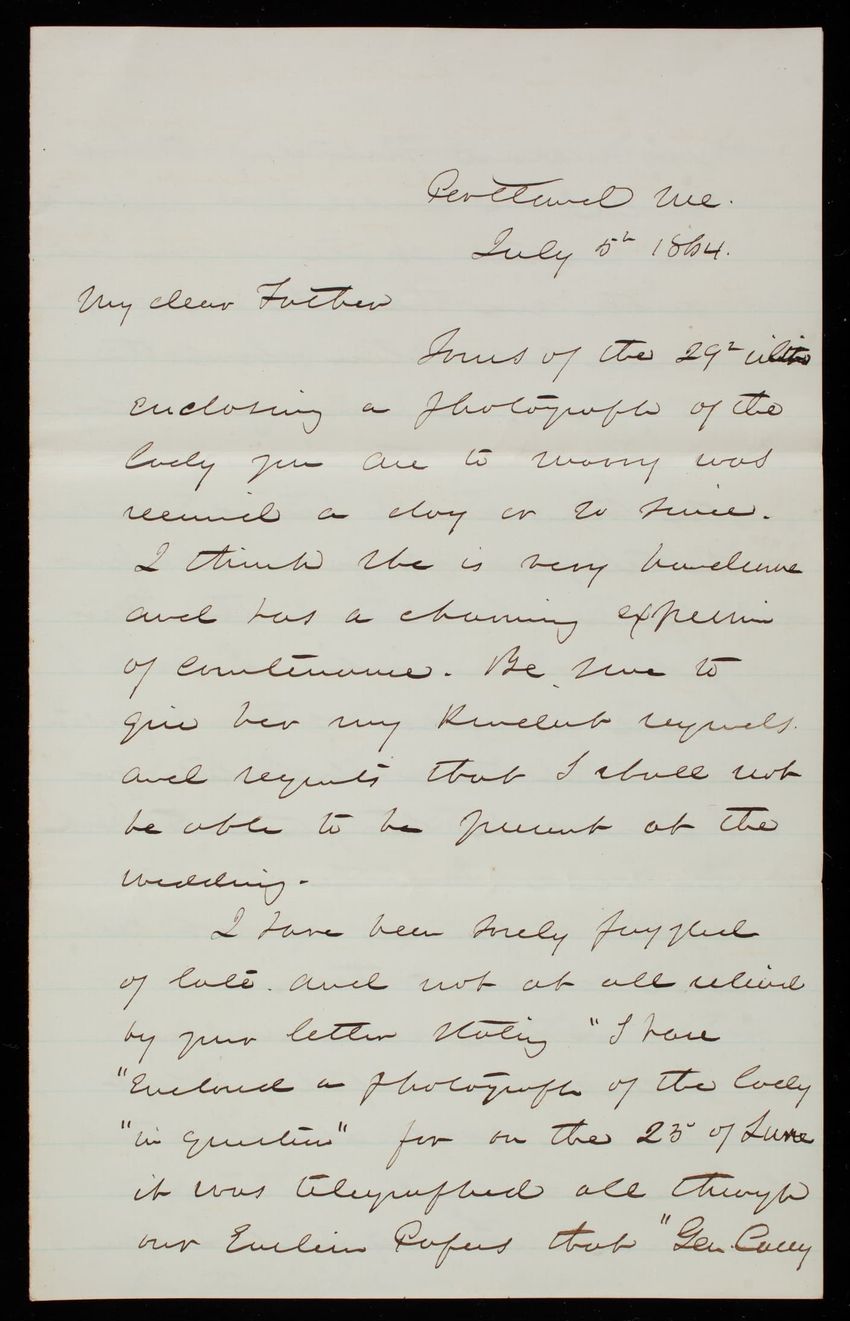 Portland Me.
July 5th 1864.
My dear Father
Yours of the 29th ulto
enclosing a photograph of the
lady you are to marry was
received a day or so since.
I think she is very handsome
and has a charming expression
of countenance. Be sure to
give her my kindest regards.
and regrets that I shall not
be able to be present at the
wedding.
I have been sorely puzzled
of late. and not at all relieved
by your letter stating "I have
"Enclosed a photograph of the lady
"in question" for on the 25 of June
it was telegraphed all through
our Eastern Papers that "Gen. Casey